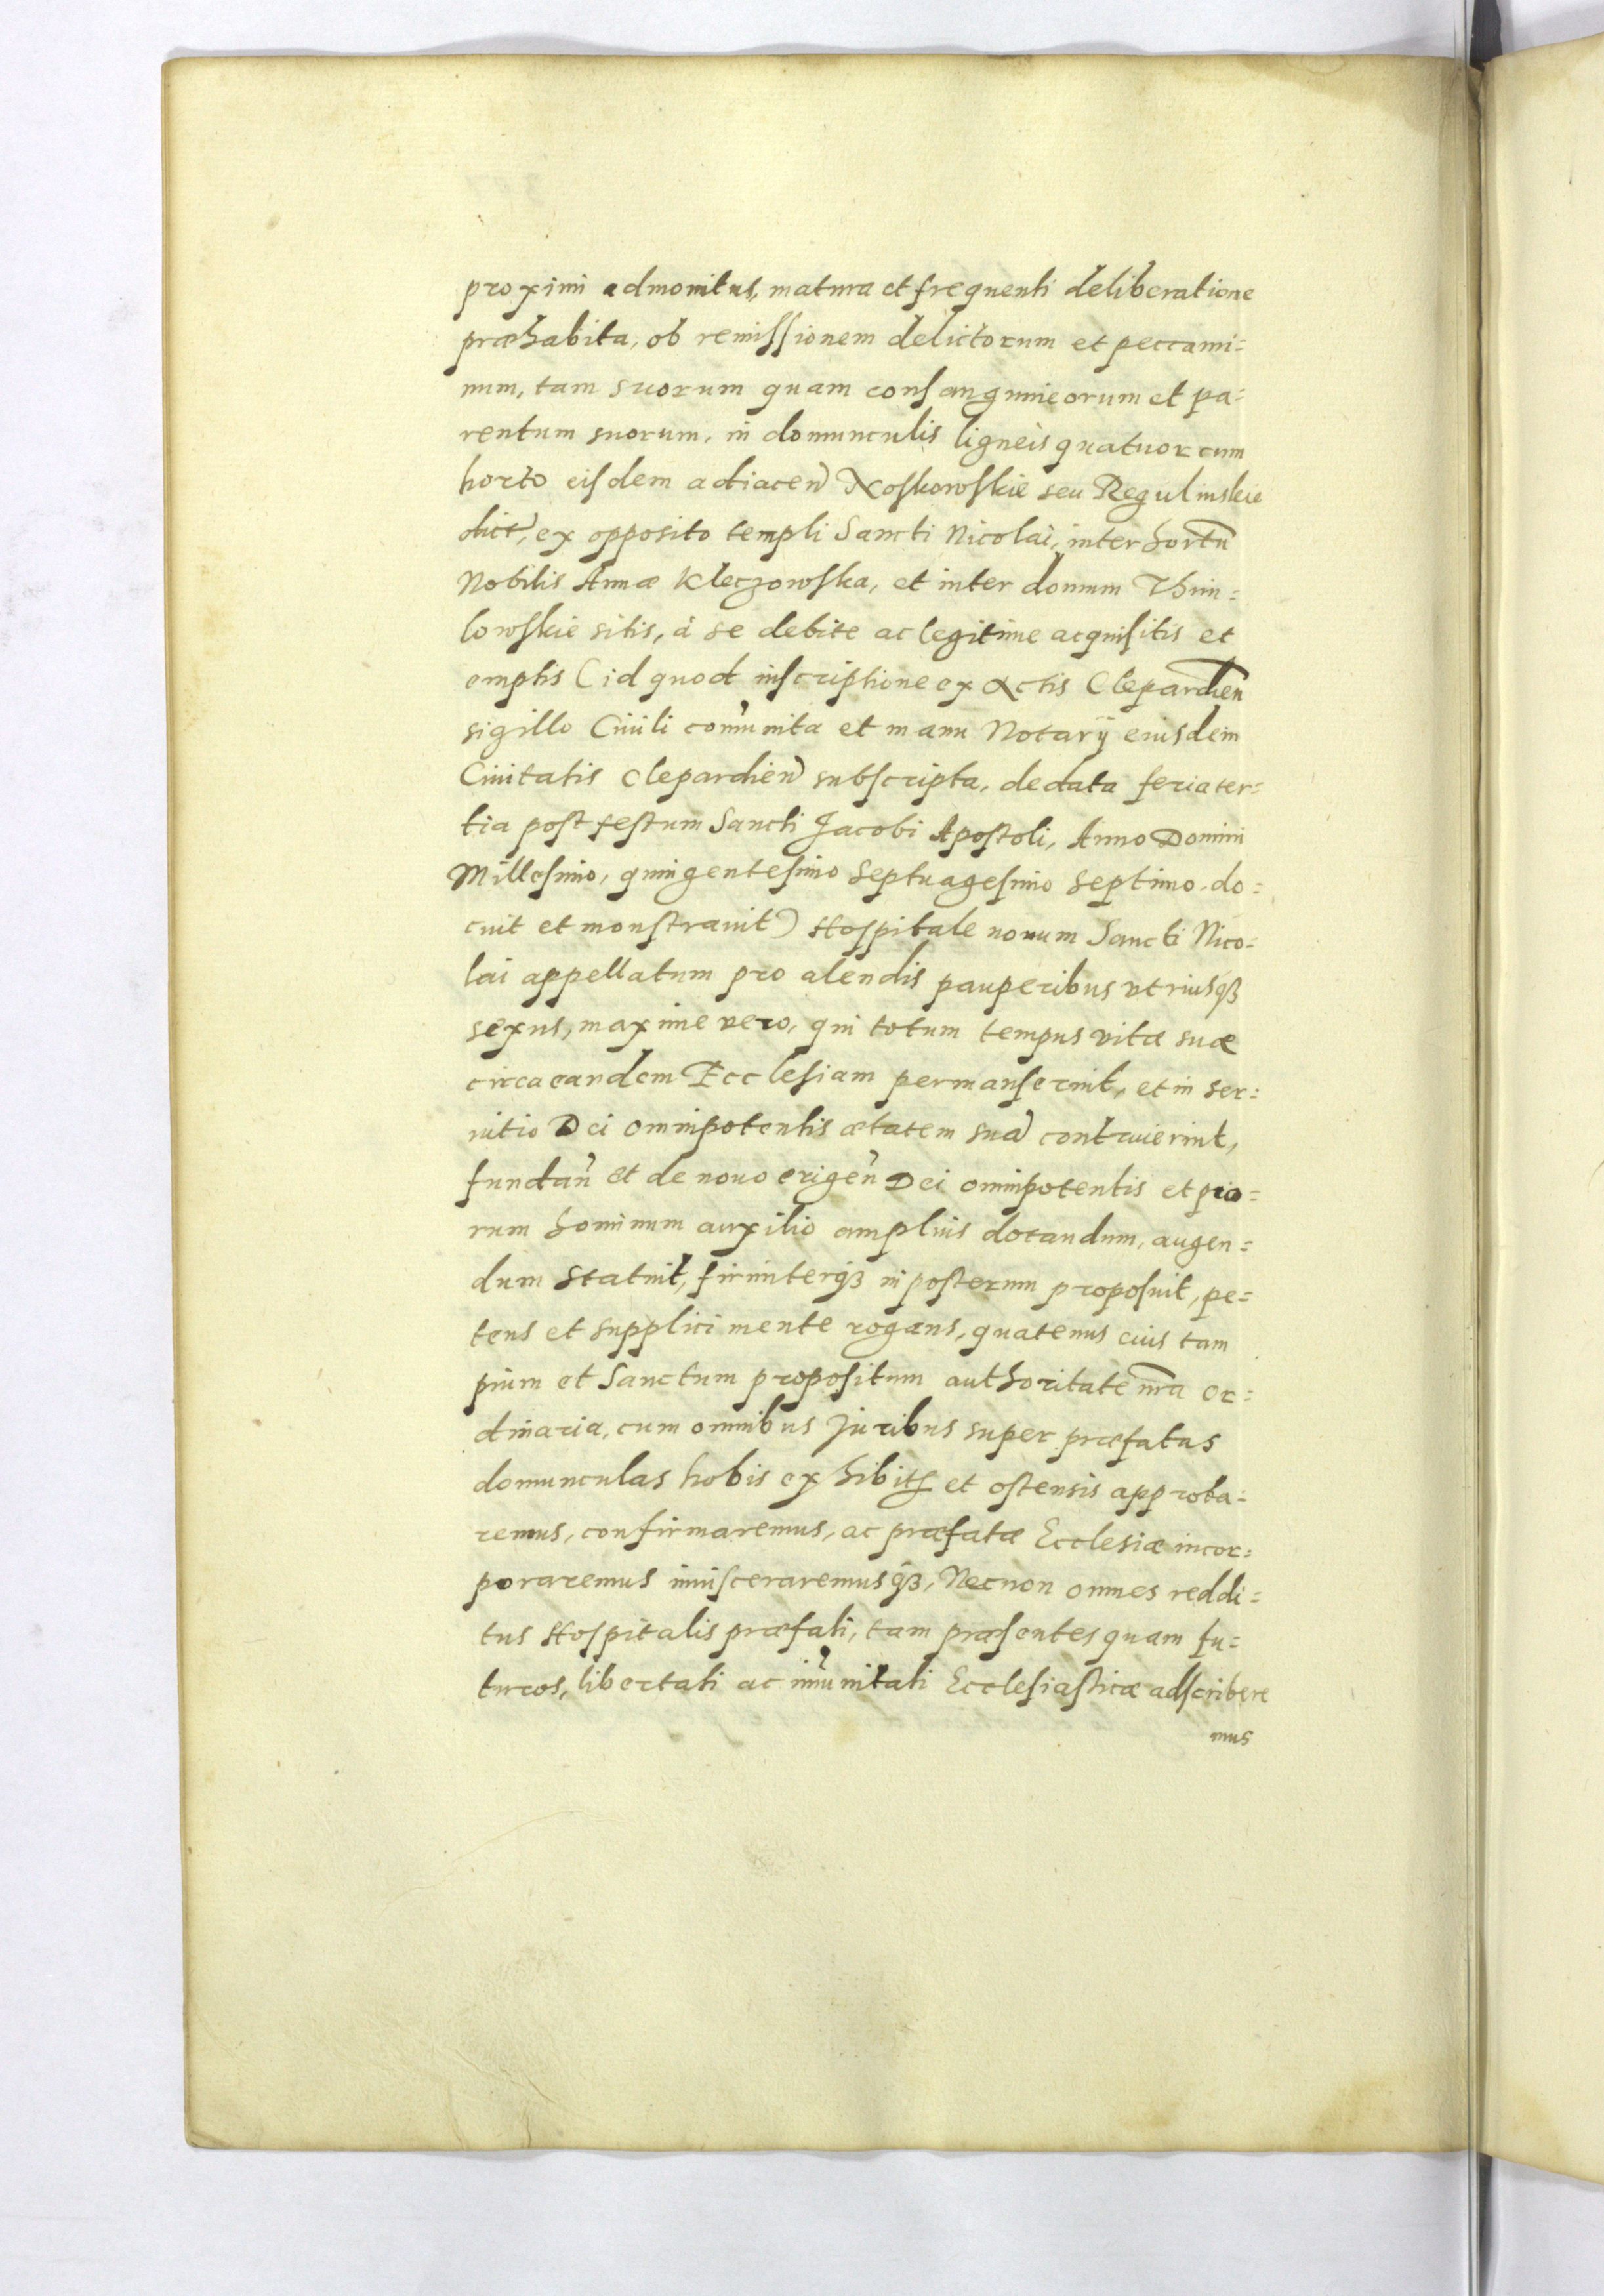 proximi admonitus, matura et frequenti deliberatione
præhabita, ob remissionem delictorum et peccami=
num, tam suorum quam consanguineorum et pa=
rentum suorum, in domunculis ligneis quatuor cum
horto eisdem adiacen Noskowskie seu Regulinskie
dict, ex opposito templi Sancti Nicolai, inter hortu
Nobilis Annæ Kleczowska, et inter domum
lowskie sitis, à se debite ac legitime acquisitis et
emptis (id quod inscriptione ex Actis Clepardien
sigillo Ciuili comunita et manu Notarij eiusdem
Ciuitatis Clepardien subscripta, de data feria ter=
tia post festum Sancti Jacobi Apostoli, Anno Domini
Millesimo, quingentesimo Septuagesimo Septimo do=
cuit et monstrauit) Hospitale nouum Sancti Nico=
lai appellatum pro alendis pauperibus vtriusq3
sexus, maxime vero, qui totum tempus vitæ suæ
circa eandem Ecclesiam permanserint, et in ser=
uitio Dei omnipotentis ætatem sua contriuerint,
fundan et de nouo erigen Dei omnipotentis et pio=
rum hominum auxilio amplius dotandum, augen=
dum statuit, firmiterq3 in posterum proposuit, pe=
tens et supplici mente rogans, quatenus eius tam
pium et Sanctum propositum authoritate nra or=
dinaria, cum omnibus Juribus super præfatas
domunculas nobis exhibitis et ostensis approba=
remus, confirmaremus, ac præfatæ Ecclesiæ incor=
poraremus inuisceraremusq3, Necnon omnes reddi=
tus Hospitalis præfati, tam præsentes quam fu=
turos, libertati ac imunitati Ecclesiasticæ adscribere
mus